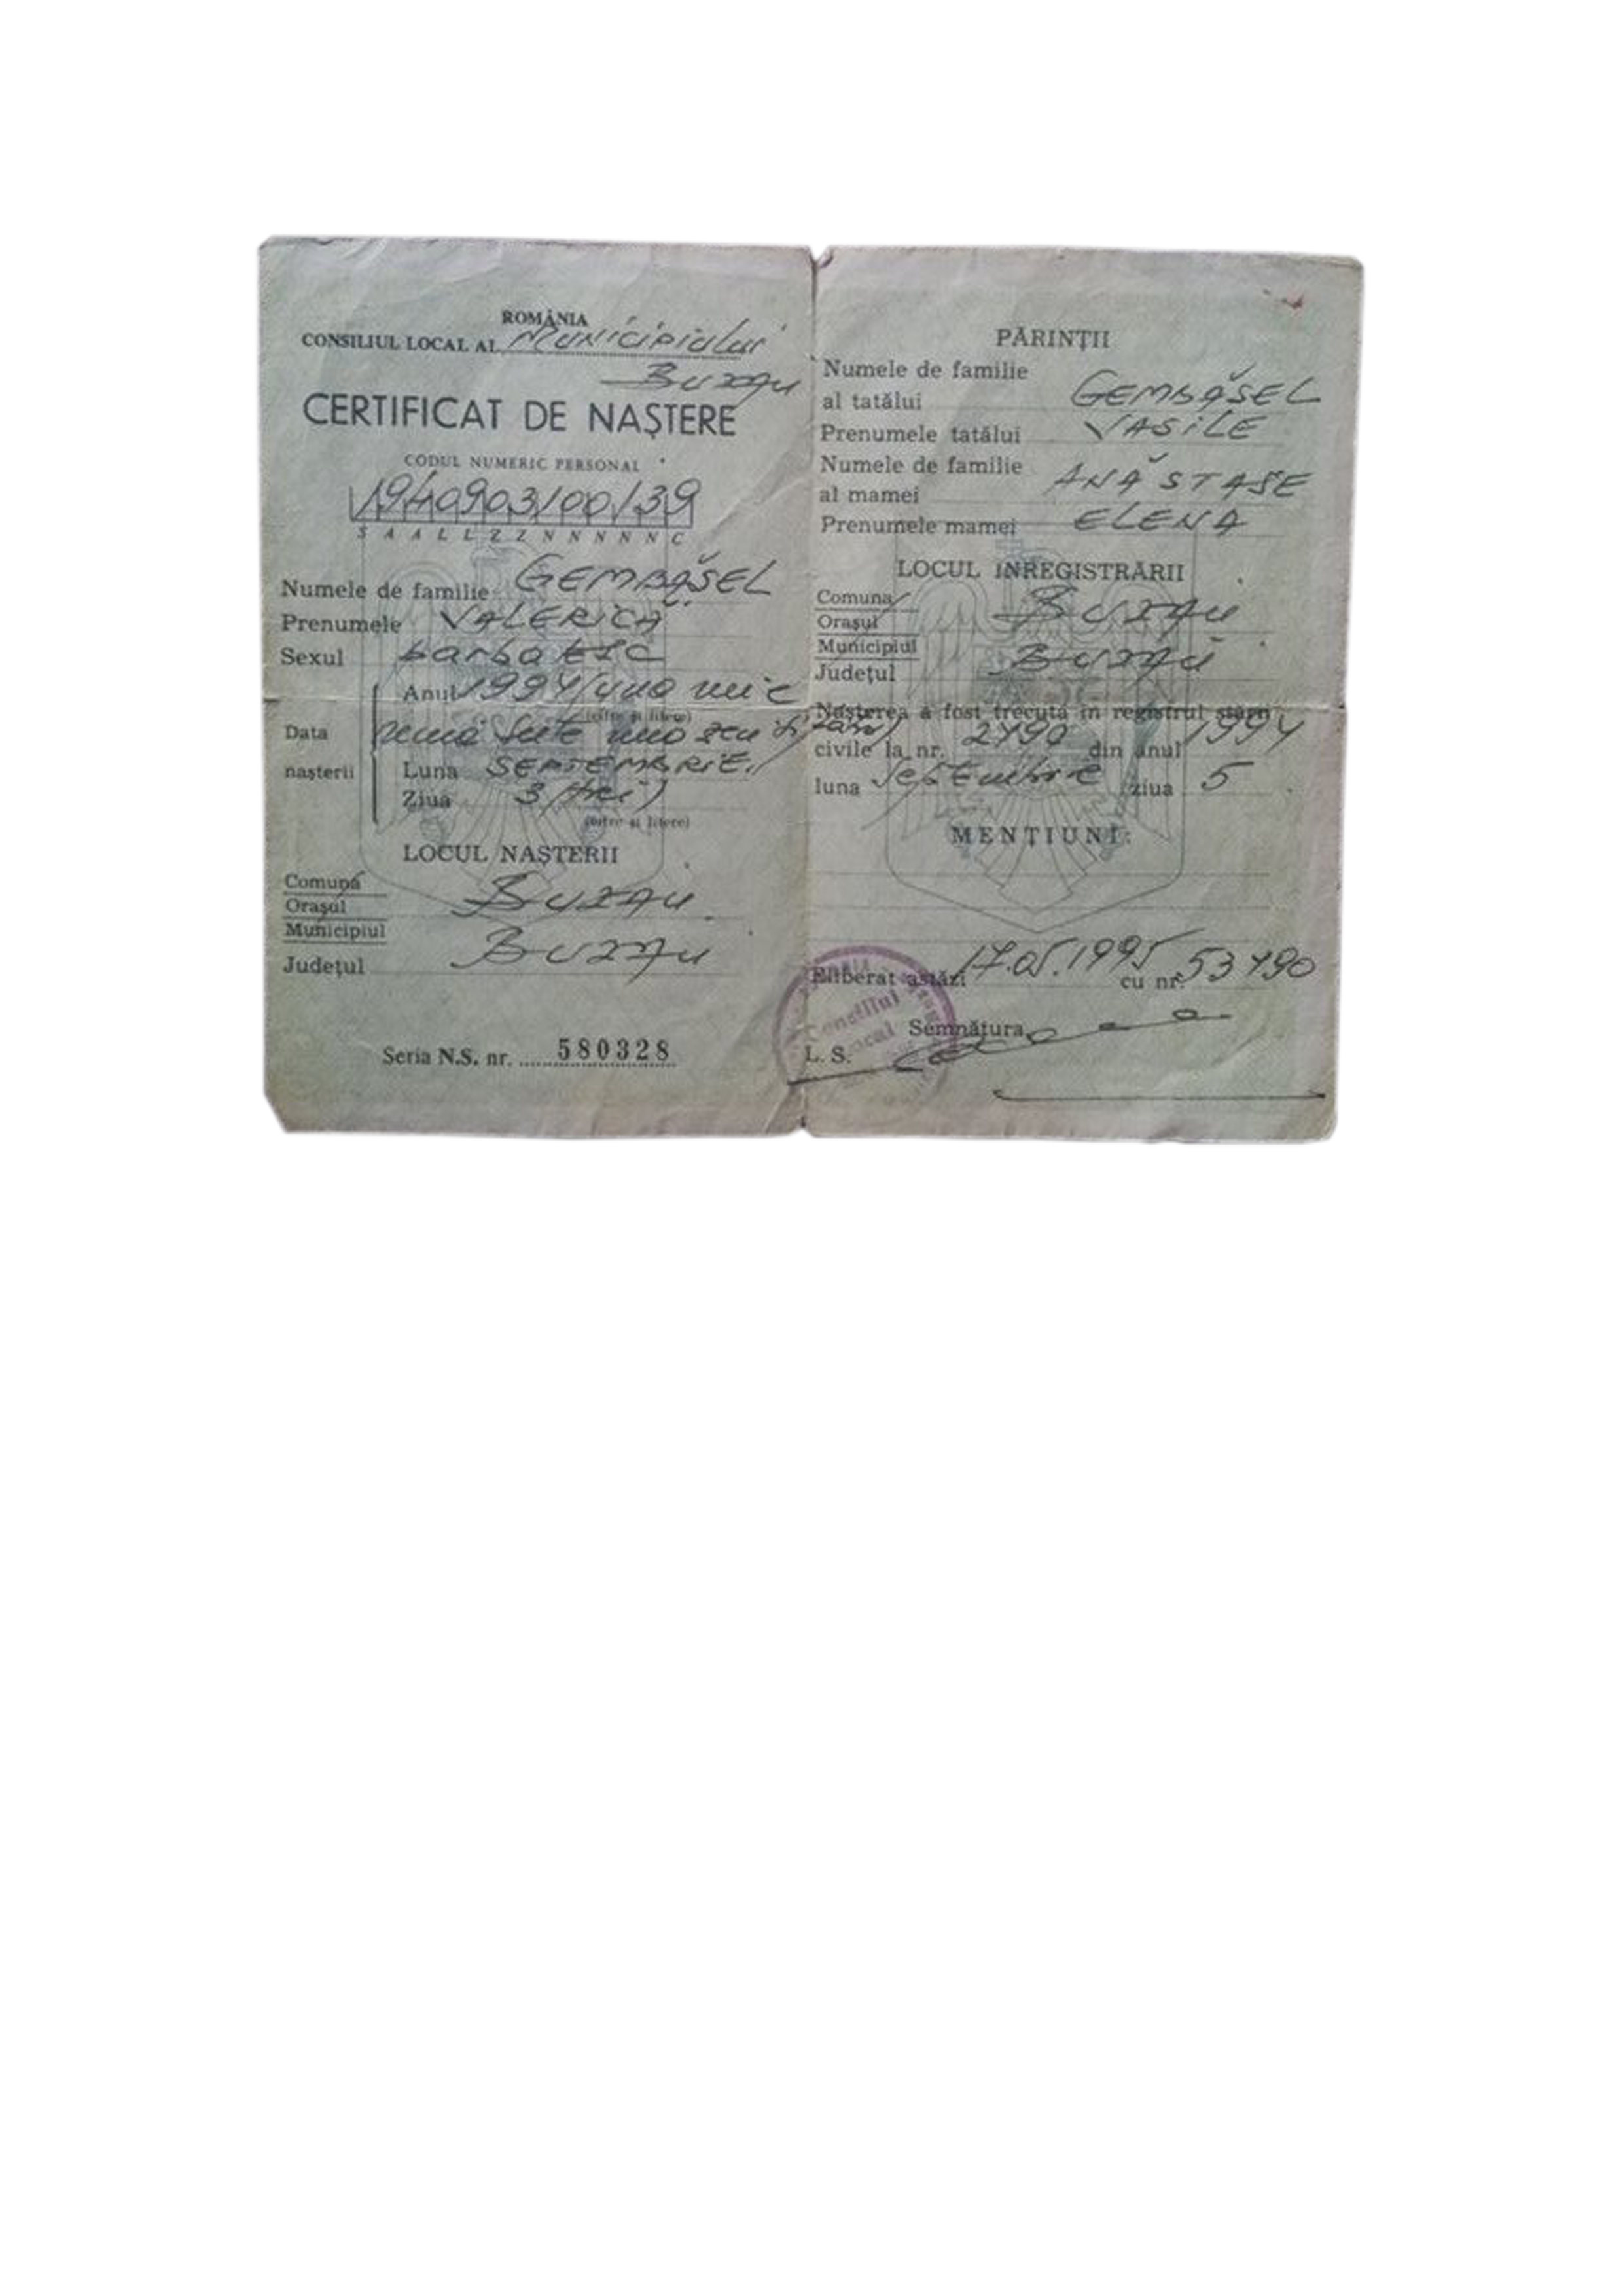 ROMÂNIA
CONSILIUL LOCAL AL Municipiului
Buzău
CERTIFICAT DE NAȘTERE
CODUL NUMERIC PERSONAL
1940903100139
S A A L L Z Z N N N N N C
Numele de familie GEMBĂȘEL
Prenumele VALERICĂ
Sexul barbatesc
Anul 1994 (una mie
(cifre și litere)
Data
nouă sute
nașterii
Luna SEPTEMBRIE
Ziua 3 (trei)
(cifre și litere)
LOCUL NAȘTERII
Comuna
Orașul
Municipiul
Buzău
Județul Buzău
Seria N.S. nr. 580328
PĂRINȚII
Numele de familie
al tatălui GEMBĂȘEL
Prenumele tatălui VASILE
Numele de familie
al mamei ANĂSTASE
Prenumele mamei ELENA
LOCUL ÎNREGISTRĂRII
Comuna
Orașul
Municipiul
Buzău
Județul Buzău
Nașterea a fost trecută în registrul stării
civile la nr. 2490 din anul 1994
luna Septembrie ziua 5
MENȚIUNI:
Eliberat astăzi 17.05.1995 cu nr. 53490
Semnătura
L. S.
Consiliul
Local